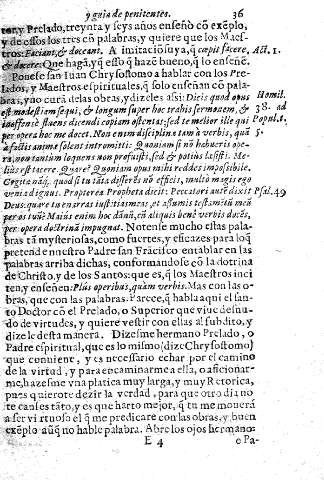 y guia de penitentes. 36
tor, y Prelado, treynta y seys años enseñò cõ exẽplo,
y de essos los tres cõ palabras, y quiere que los Maes-
tros: Faciant, & doceant. A imitaciõ suya, q̃ cœpit facere,
& docere: Que hagã, y q̃ esso q̃ hazẽ bueno, q̃ lo enseñẽ.
Act, 1.
Ponese san Iuan Chrysostomo a hablar con los Pre-
lados, y Maestros espirituales, q̃ solo enseñan cõ pala-
bras, y no cura del as obras, y dizeles assi: Dicis quod opus
est modestiam sequi, & longum super hoc trahis sermonem, &
Homil.
38. ad
Popul. t.
5.
per opera hoc me docet. Non enim disciplinæ tam à verbis, quã
à factis animæ solent intromitti. Quoniam si nõ habueris ope-
ra, non tantum loquens non profuisti, sed & potius læsisti. Me-
lius est tacere. Quare? Quoniam opus mihi reddes impossibile.
venia dignus. Propterea Propheta dicit: Peccatori autẽ dixit
Psal. 49
Deus: quare tu enarras iustitias meas, et assumis testamẽtũ meũ
per os tuũ? Maius enim hoc dãnũ, cũ aliquis benè verbis docẽs,
per opera doctrinã impugnat. Notense mucho estas pala-
bras tã mysteriosas, como fuertes, y eficazes para loq̃
pretende nuestro Padre san Frãcisco entablar en las
palabras arriba dichas, conformandose cõ la dotrina
de Christo, y de los Santos: que es, q̃ los Maestros inci-
ten, y enseñen: Plus operibus, quàm verbis. Mas con las o-
bras, que con las palabras. Parece, q̃ habla aqui el san-
to Doctor cõ el Prelado, o Superior que viue desnu-
do de virtudes, y quiere vestir con ellas al subdito, y
dize le desta manera. Dizesme hermano Prelado, o
Padre espiritual, (que es lo mismo) (dize Chrysostomo)
que conuient, y es necessario echar por el camino
de la virtud, y para encaminarme a ella, o aficionar-
me, hazesme vna platica muy larga, y muy Retorica,
pues quierote dezir la verdad, para que otro dia no
te canses tãto, y es que harto mejor, q̃ tu me mouerà
a ser virtuoso el q̃ me predicare con las obras, y buen
exẽplo aũq̃ no hable palabra. Abre los ojos hermano:
E 4 o Pa-